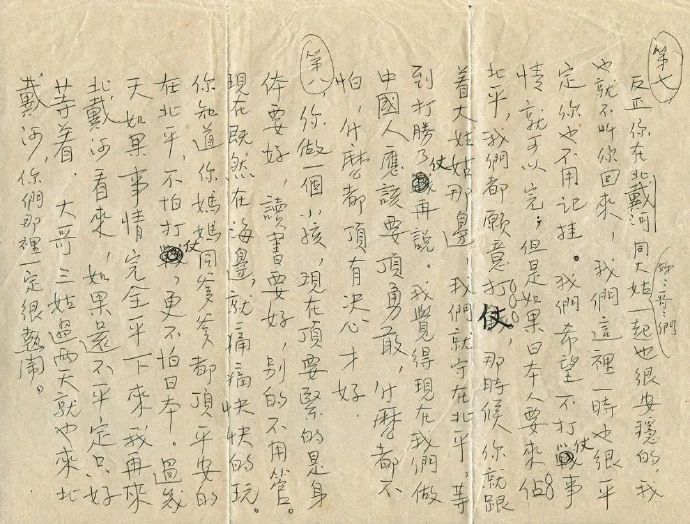 第七
反正你在北戴河同大姑姐々哥々們一起也很安穩的,我
也就不叫你回来,我們這裡一時也很平
定你也不用记挂。我們希望不打仗事
情就可以完;但是如果日本人要来佔
北平,我們都願意打仗,那時候你就跟
着大姑姑那邊,我們就守在北平等
到打勝了仗再說。我覺得現在我們做
中國人應該要頂勇敢,什麼都不
怕,什麼都頂有决心才好.
第八
你做一個小孩,現在頂要緊的是身
体要好,讀書要好,别的不用管。
現在既然在海邊,就痛痛快快的玩。
你知道你媽媽同爹爹都頂平安的
在北平,不怕打仗,更不怕日本。過幾
天如果事情完全平下来,我再来
北戴河看来,如果還不平定只好
等着.大哥三姑過兩天就也来北
戴河,你們那裡一定很熱鬧。